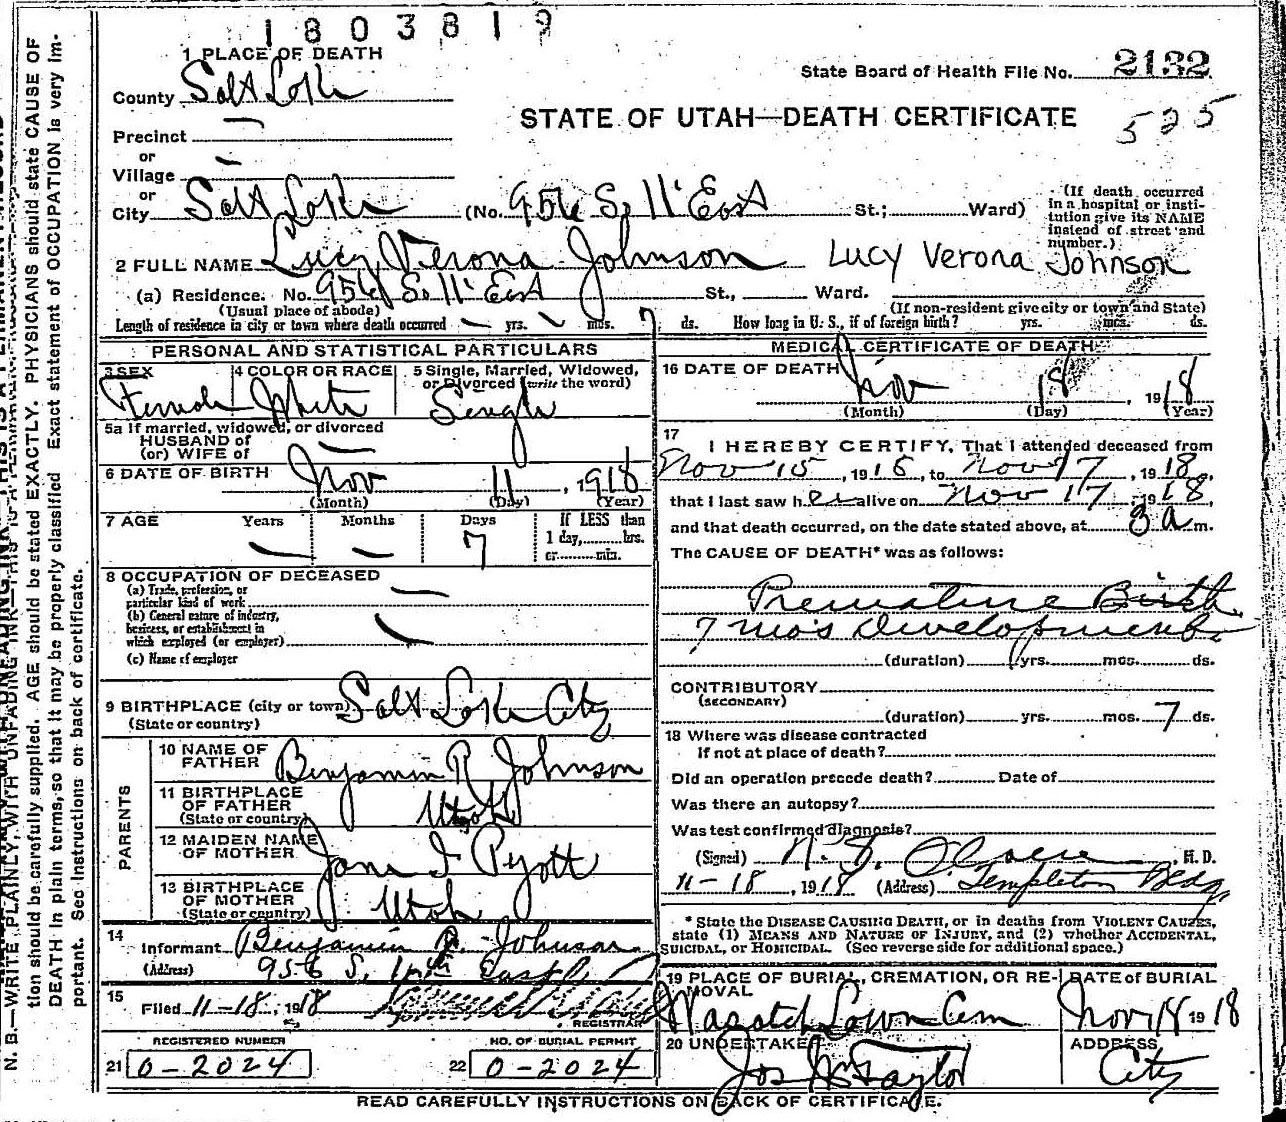 1803819
1 PLACE OF DEATH
State Board of Health File No. 2132
County Salt Lake
STATE OF UTAH—DEATH CERTIFICATE
525
Precinct —
or
Village —
or
City Salt Lake (No. 956 S. 11' East St.; Ward)
(If death occurred in a hospital or institution give its NAME instead of street and number.)
2 FULL NAME Lucy Verona Johnson Lucy Verona Johnson
(a) Residence. No. 956 S. 11' East St., Ward.
(Usual place of abode) (If non-resident give city or town and State)
Length of residence in city or town where death occurred — yrs. — mos. 7 ds. How long in U. S., if of foreign birth? yrs. mos. ds.
PERSONAL AND STATISTICAL PARTICULARS
3 SEX 4 COLOR OR RACE 5 Single, Married, Widowed, or Divorced (write the word)
Female White Single
5a If married, widowed, or divorced
HUSBAND of
(or) WIFE of —
6 DATE OF BIRTH Nov 11, 1918
(Month) (Day) (Year)
7 AGE Years Months Days If LESS than
— — 7 1 day, hrs.
or min.
8 OCCUPATION OF DECEASED
(a) Trade, profession, or
particular kind of work —
(b) General nature of industry,
business, or establishment in
which employed (or employer) —
(c) Name of employer
9 BIRTHPLACE (city or town) Salt Lake City
(State or country)
PARENTS
10 NAME OF
FATHER Benjamin R Johnson
11 BIRTHPLACE
OF FATHER Utah
(State or country)
12 MAIDEN NAME
OF MOTHER Jane I Pyott
13 BIRTHPLACE
OF MOTHER Utah
(State or country)
14
Informant Benjamin R. Johnson
(Address) 956 S. 11th East
15
Filed 11-18, 1918
REGISTRAR
REGISTERED NUMBER NO. OF BURIAL PERMIT
21 0-2024 22 0-2024
MEDICAL CERTIFICATE OF DEATH
16 DATE OF DEATH Nov 18, 1918
(Month) (Day) (Year)
17
I HEREBY CERTIFY, That I attended deceased from
Nov 15, 1918, to Nov 17, 1918,
that I last saw her alive on Nov 17, 1918,
and that death occurred, on the date stated above, at 3 a m.
The CAUSE OF DEATH* was as follows:
Premature Birth
7 mo's development
(duration) yrs. mos. ds.
CONTRIBUTORY
(SECONDARY)
(duration) yrs. mos. 7 ds.
18 Where was disease contracted
If not at place of death?
Did an operation precede death? Date of
Was there an autopsy?
Was test confirmed diagnosis?
(Signed) M. D.
11-18, 1918 (Address) Templeton Bldg
* State the DISEASE CAUSING DEATH, or in deaths from VIOLENT CAUSES,
state (1) MEANS AND NATURE OF INJURY, and (2) whether ACCIDENTAL,
SUICIDAL, or HOMICIDAL. (See reverse side for additional space.)
19 PLACE OF BURIAL, CREMATION, OR REMOVAL DATE of BURIAL
Wasatch Lawn Cem Nov 18 1918
20 UNDERTAKER ADDRESS
Jos Wm Taylor City
READ CAREFULLY INSTRUCTIONS ON BACK OF CERTIFICATE.
N. B.—WRITE PLAINLY, WITH UNFADING INK—THIS IS A PERMANENT RECORD
tion should be carefully supplied. AGE should be stated EXACTLY. PHYSICIANS should state CAUSE OF
DEATH in plain terms, so that it may be properly classified Exact statement of OCCUPATION is very im-
portant. See Instructions on back of certificate.